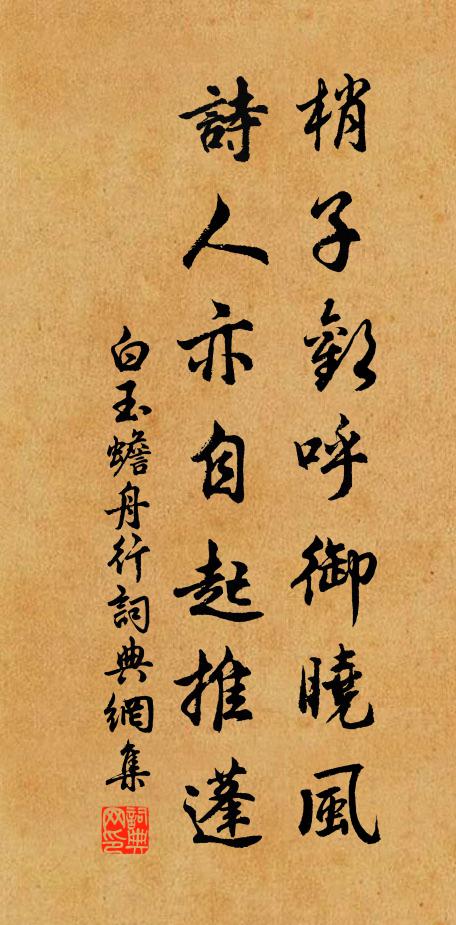 梢子歡呼御曉風
詩人亦自起推蓬
白玉蟾舟行詞典網集
詞典网印